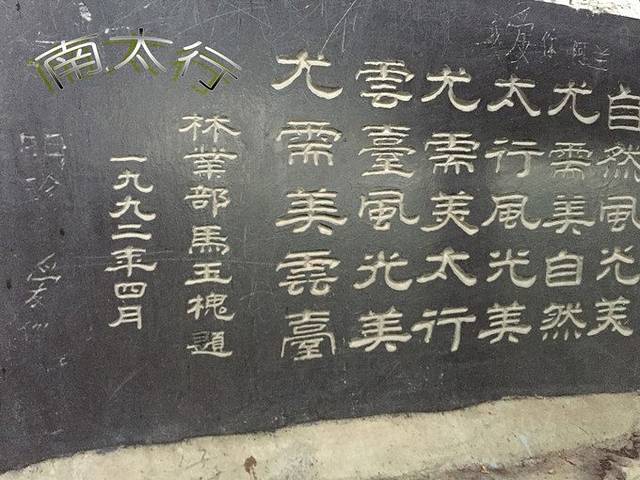 自然風光美
尤需美自然
太行風光美
尤需美太行
雲臺風光美
尤需美雲臺
林業部馬玉槐題
一九九二年四月
南太行